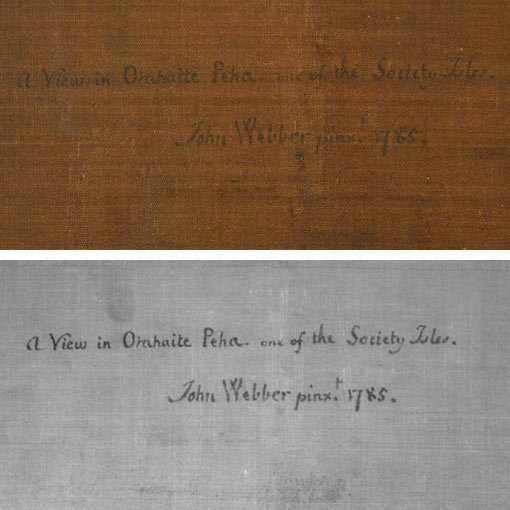 A View in Orahaite Peha. one of the Society Isles.
John Webber pinx.t 1785.
A View in Orahaite Peha. one of the Society Isles.
John Webber pinx.t 1785.